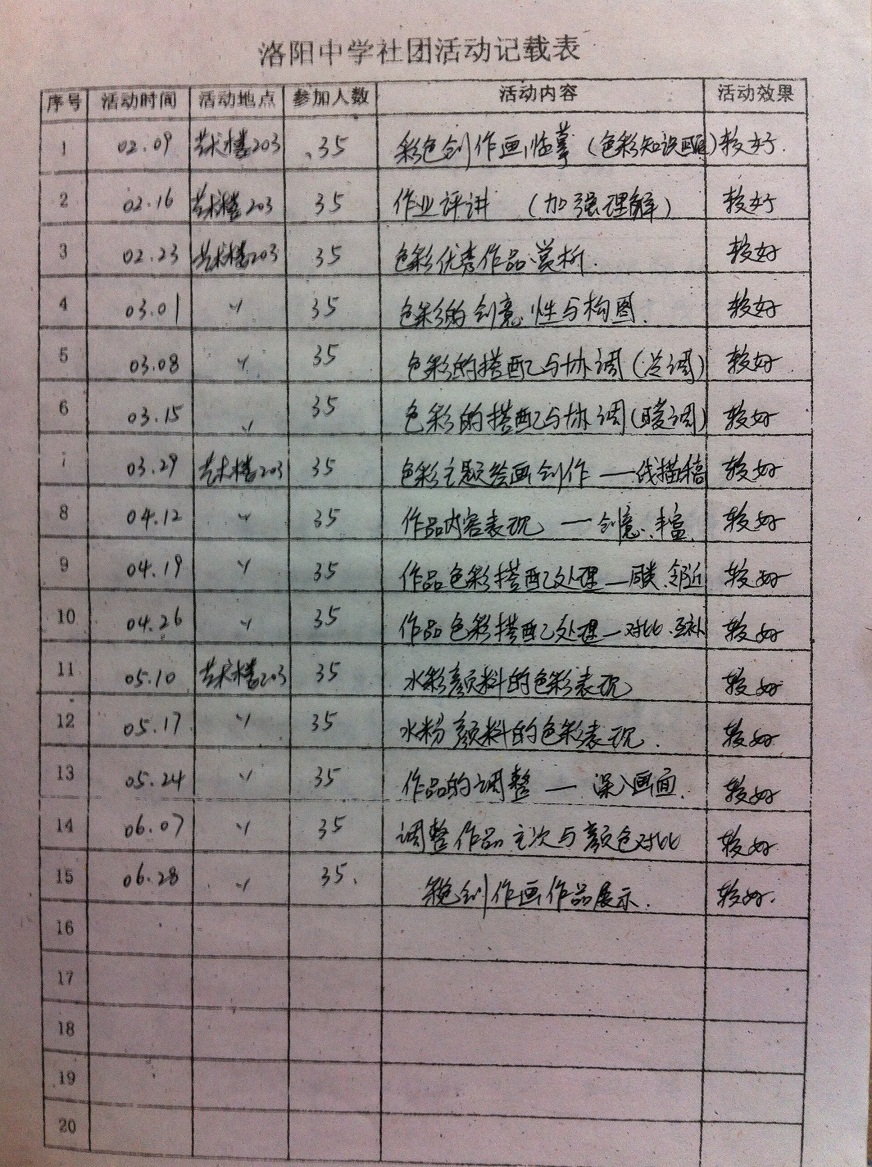 洛阳中学社团活动记载表
序号 活动时间 活动地点 参加人数 活动内容 活动效果
1 02.09 艺术楼203 35 彩色创作画临摹（色彩知识 较好.
2 02.16 艺术楼203 35 作业评讲 （加强理解） 较好
3 02.23 艺术楼203 35 色彩优秀作品赏析. 较好
4 03.01 〃 35 色彩的创意性与构图. 较好
5 03.08 〃 35 色彩的搭配与协调（冷调） 较好
6 03.15 〃 35 色彩的搭配与协调（暖调） 较好
7 03.29 艺术楼203 35 色彩主题绘画创作——线描稿 较好
8 04.12 〃 35 作品内容表现 — 创意、丰富. 较好
9 04.19 〃 35 作品色彩搭配处理—同类.邻近 较好
10 04.26 〃 35 作品色彩搭配处理—对比.互补 较好
11 05.10 艺术楼203 35 水彩颜料的色彩表现 较好
12 05.17 〃 35 水粉颜料的色彩表现. 较好
13 05.24 〃 35 作品的调整 — 深入画面. 较好
14 06.07 〃 35 调整作品主次与颜色对比 较好
15 06.28 〃 35. 彩色创作画作品展示. 较好.
16
17
18
19
20